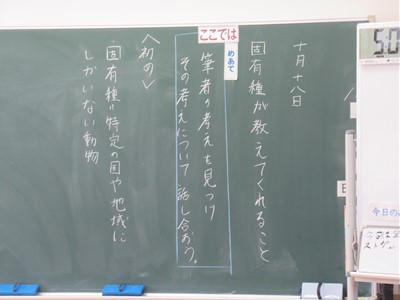 十月十八日
固有種が教えてくれること
ここでは
めあて
筆者の考えを見つけ
その考えについて話し合おう。
〈初め〉
固有種=特定の国や地域に
しかいない動物